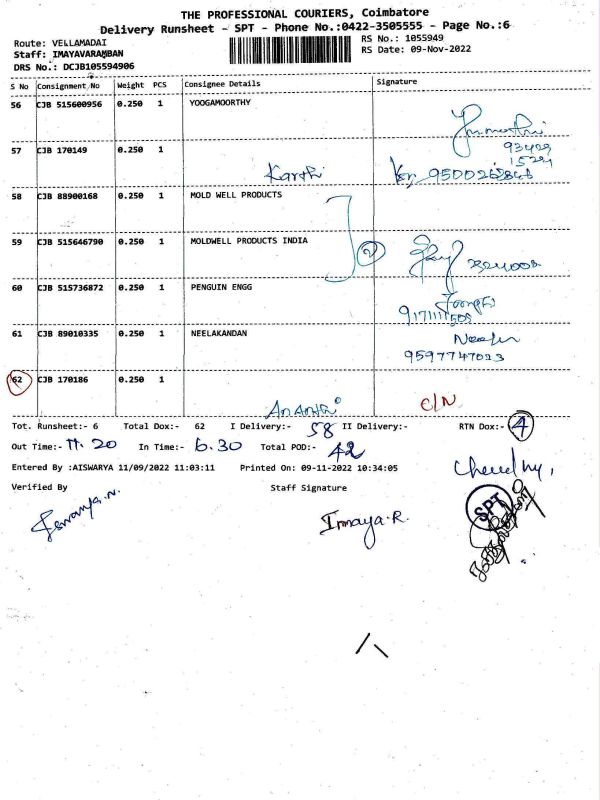 THE PROFESSIONAL COURIERS, Coimbatore
Delivery Runsheet - SPT - Phone No.:0422-3505555 - Page No.:6
Route: VELLAMADAI
RS No.: 1055949
Staff: IMAYAVARAMBAN
RS Date: 09-Nov-2022
DRS No.: DCJB105594906
S No Consignment No Weight PCS Consignee Details Signature
56 CJB 515600956 0.250 1 YOOGAMOORTHY
57 CJB 170149 0.250 1
Karthi 9500262846
58 CJB 88900168 0.250 1 MOLD WELL PRODUCTS
59 CJB 515646790 0.250 1 MOLDWELL PRODUCTS INDIA
2
60 CJB 515736872 1 PENGUIN ENGG
0.250
61 CJB 89010335 0.250 1 NEELAKANDAN
9597747023
62 CJB 170186 0.250 1
C/N
Tot. Runsheet:- 6 Total Dox:- 62 I Delivery:- 58 II Delivery:- RTN Dox:- 4
Out Time:- 11.20 In Time:- 6.30 Total POD:- 42
Entered By :AISWARYA 11/09/2022 11:03:11 Printed On: 09-11-2022 10:34:05
Verified By Staff Signature
SPT
Imaya.R.